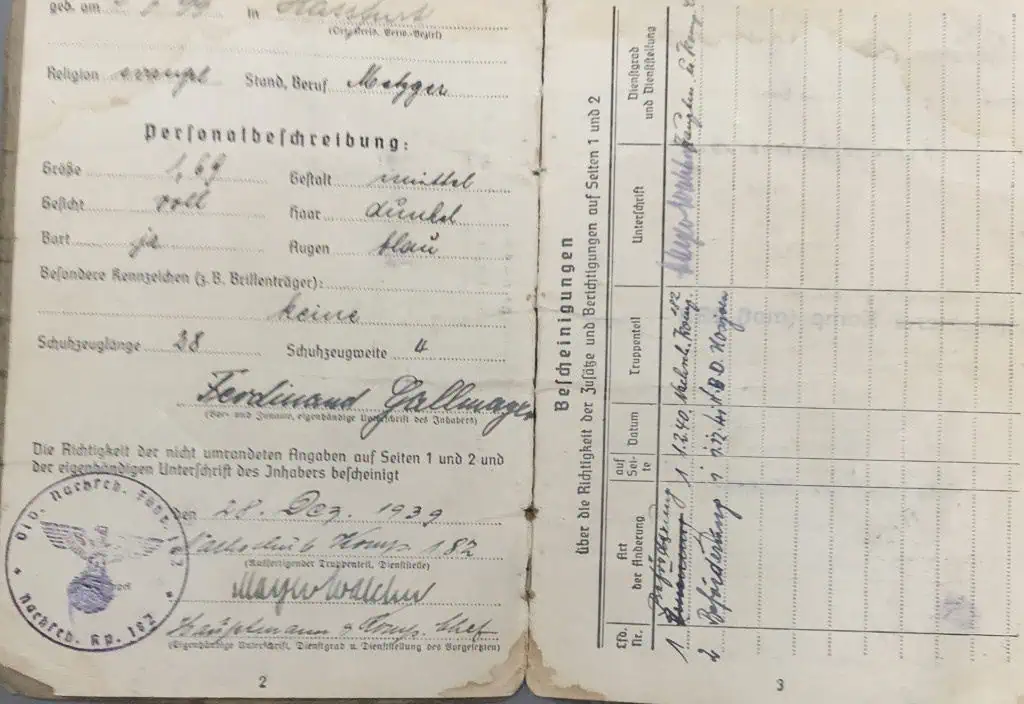 geb. am 99 in Hassfurt
(Ort, Kreis, Verw.-Bezirk)
Religion evangl Stand, Beruf Metzger
Personalbeschreibung:
Größe 1,69 Gestalt mittel
Gesicht voll Haar dunkel
Bart ja Augen blau
Besondere Kennzeichen (z.B. Brillenträger):
keine
Schuhzeuglänge 28 Schuhzeugweite 4
Ferdinand
(Vor- und Zuname, eigenhändige Unterschrift des Inhabers)
Die Richtigkeit der nicht umrandeten Angaben auf Seiten 1 und 2 und
der eigenhändigen Unterschrift des Inhabers bescheinigt
den 28. Dez. 1939
Nachschub Komp. 182
(Ausfertigender Truppenteil, Dienststelle)
Hauptmann u Komp. Chef
(Eigenhändige Unterschrift, Dienstgrad u. Dienststellung des Vorgesetzten)
Div. Nachsch.
Nachsch. Kp. 182
2
Bescheinigungen
über die Richtigkeit der Zusätze und Berichtigungen auf Seiten 1 und 2
Lfd. Nr. Art der Änderung auf Seite Datum Truppenteil Unterschrift Dienstgrad und Dienststellung
1 Beförderung 1 1.2.40. Komp.
2 Beförderung 1
3